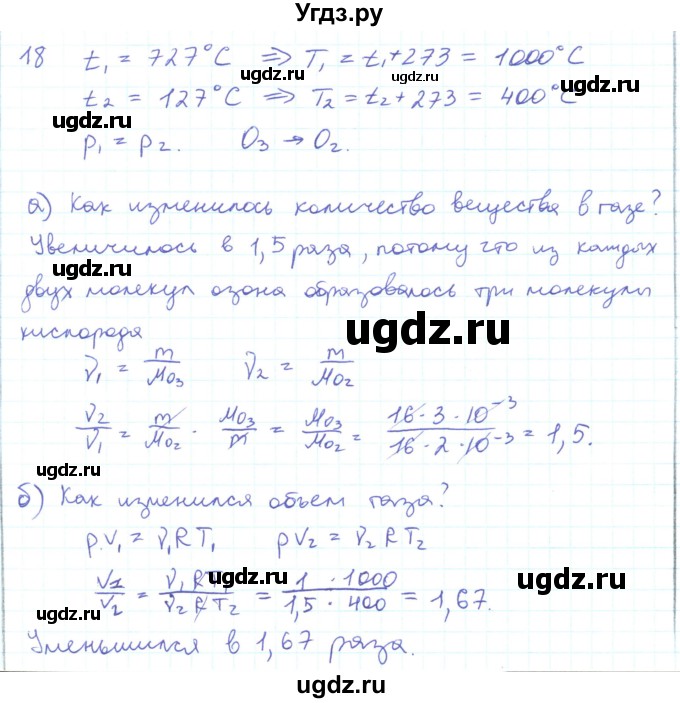 Угдз.ру
18 t₁ = 727°C ⇒ T₁ = t₁+273 = 1000°C
ugdz.ru ugdz.ru
t₂ = 127°C ⇒ T₂ = t₂+273 = 400°C
ugdz.ru ugdz.ru
p₁ = p₂. O₃ → O₂.
а) Как изменилось количество вещества в газе?
ugdz.ru
Увеличилось в 1,5 раза, потому что из каждых
ugdz.ru
двух молекул озона образовалось три молекулы
кислорода
ugdz.ru
ν₁ = m/M_O₃ ν₂ = m/M_O₂
ν₂/ν₁ = m/M_O₂ · M_O₃/m = M_O₃/M_O₂ = 16·3·10⁻³/16·2·10⁻³ = 1,5.
ugdz.ru
б) Как изменился объем газа?
ugdz.ru
pV₁ = ν₁RT₁ pV₂ = ν₂RT₂
V₁/V₂ = ν₁RT₁/ν₂RT₂ = 1·1000/1,5·400 = 1,67.
ugdz.ru ugdz.ru
ugdz.ru
Уменьшился в 1,67 раза.
ugdz.ru
ugdz.ru